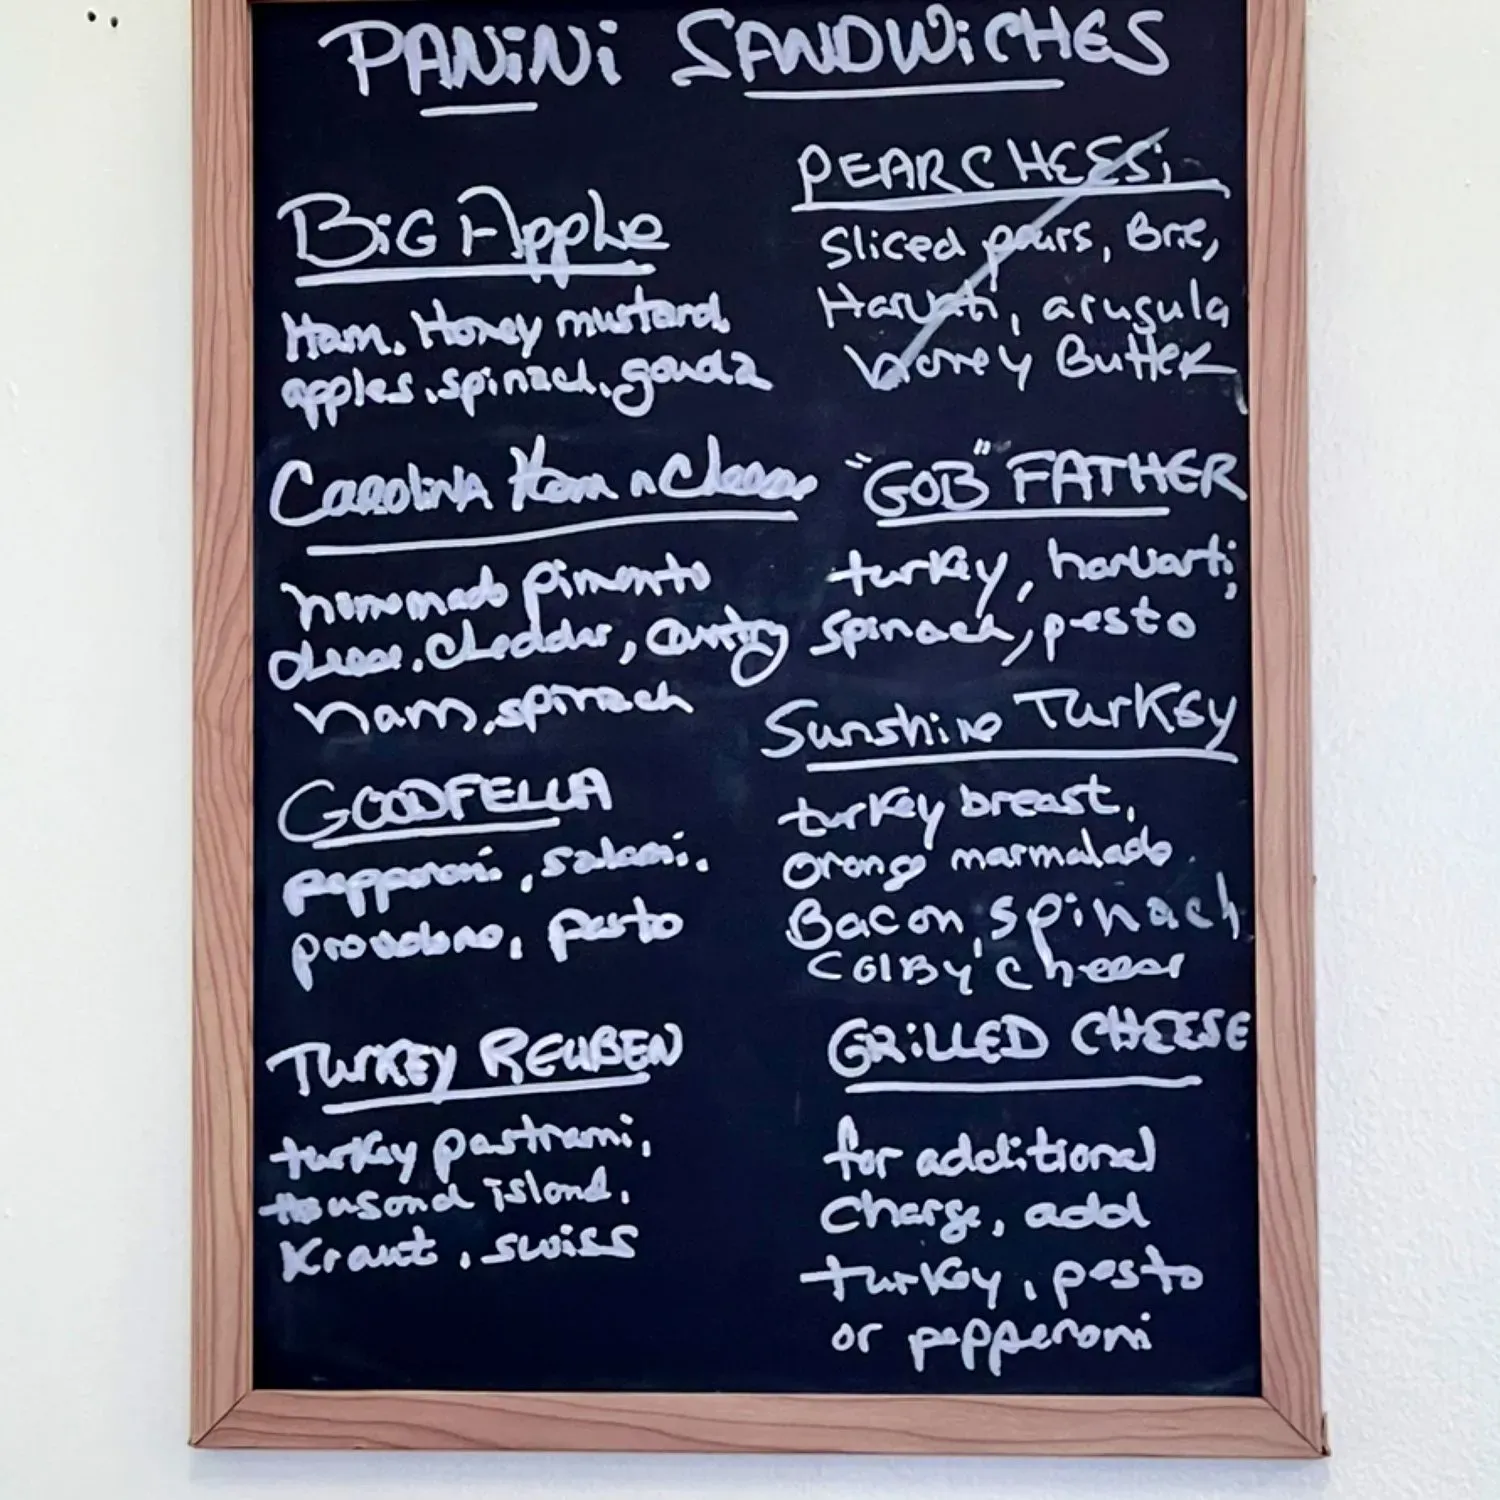 PANiNi SANDWiCHES
BiG Apple
Ham. Honey mustard.
apples. spinach. gouda
CAROLiNA Ham n Cheese
homemade pimento
cheese. cheddar, country
ham, spinach
GOODFELLA
pepperoni, salami.
provolone, pesto
TURKEY REUBEN
turkey pastrami,
thousand island.
Kraut, swiss
PEAR CHEESi
Sliced pears, Brie,
Harvati, arugula
honey Butter
"GOB" FATHER
turkey, harvarti,
spinach, pesto
Sunshine Turkey
turkey breast,
orange marmalade
Bacon, spinach
COLBY cheese
GRiLLED CHEESE
for additional
charge, add
turkey, pesto
or pepperoni